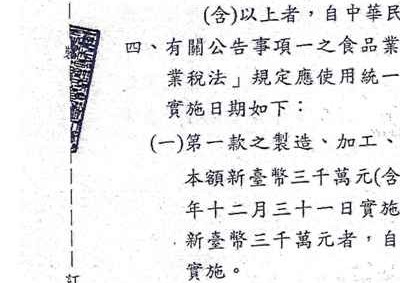 (含)以上者，自中華民
四、有關公告事項一之食品業
業稅法」規定應使用統一
實施日期如下：
(一)第一款之製造、加工、
本額新臺幣三千萬元(含
年十二月三十一日實施
新臺幣三千萬元者，自
實施。
裝
訂